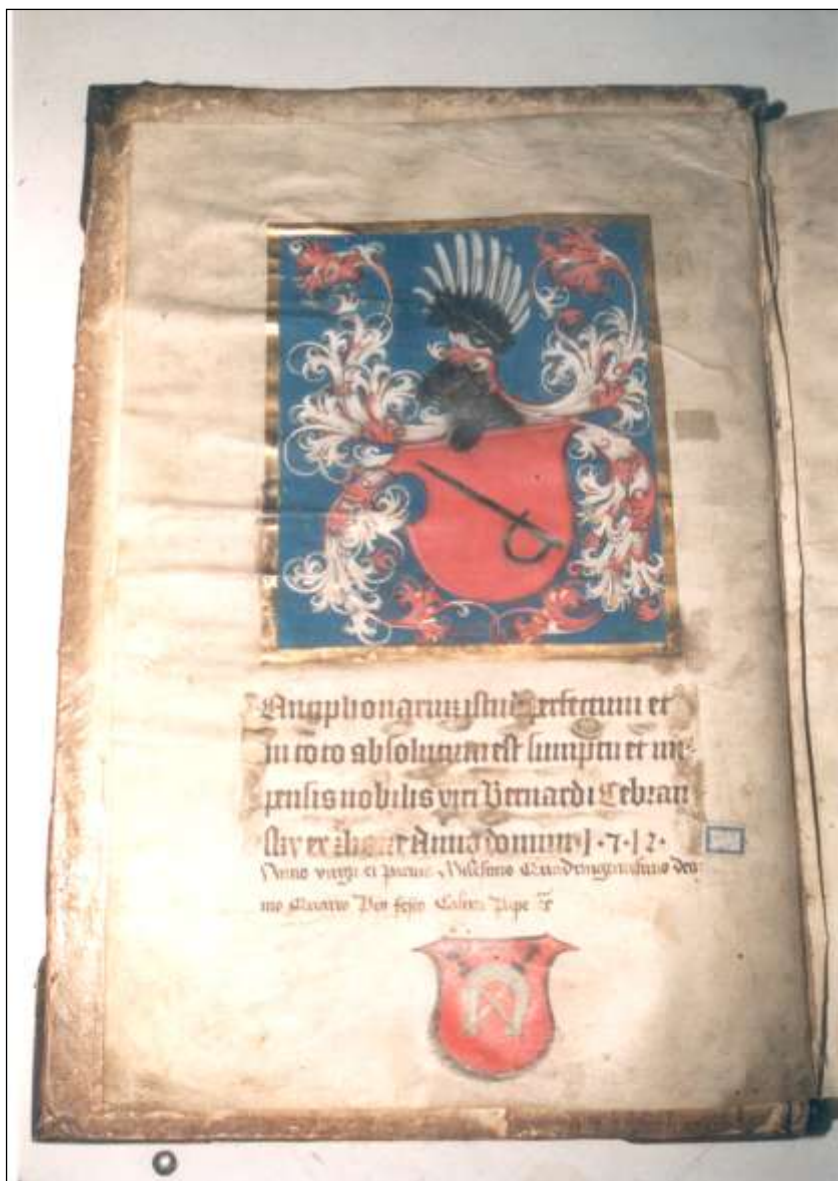 Antiphonarium istud perfectum et
in toto absolutum est sumptu et im-
pensis nobilis viri Bernardi Lebran
Anno domini 1·7·12·
Anno virgi et partus Milesimo Quadringentesimo dec
mo Quarto festo Calixti Pape